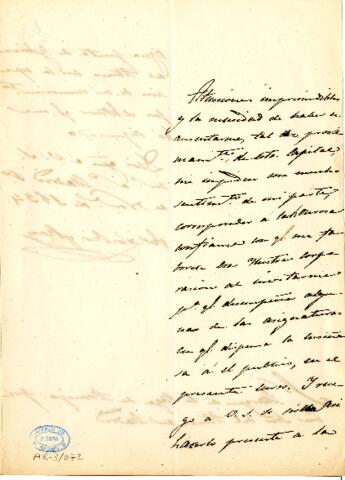 Atenciones imprescindibles
y la necesidad de haber de
ausentarme, tal vez proxi
mamte. de esta Capital,
me impiden con mucho
sentimto. de mi parte,
corresponder a la honrosa
confianza con qe. me fa
borece esa Ilustre corpo
racion al invitarme
pa. qe. desempeñe algu
nas de las asignaturas
con qe. dispensa la enseñan
sa á el publico, en el
presente curso. Y rue
go a V.S. se sirva asi
hacerlo presente a la
AR-3/072